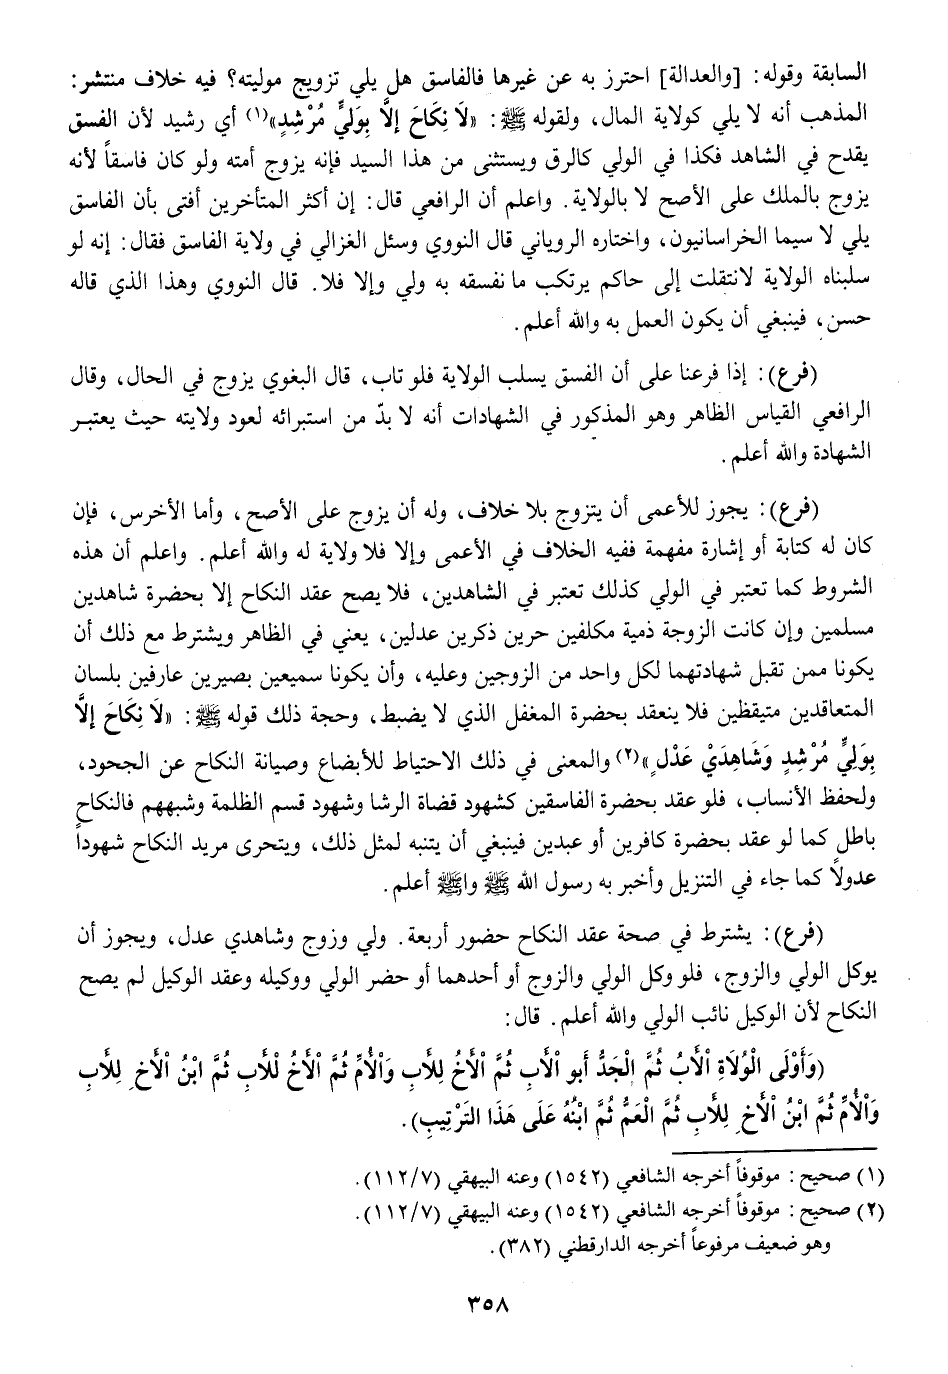 السابقة وقوله: [والعدالة] احترز به عن غيرها فالفاسق هل يلي تزويج موليته؟ فيه خلاف منتشر:
المذهب أنه لا يلي كولاية المال، ولقوله ﷺ: «لَا نِكَاحَ إلَّا بِوَليٍّ مُرْشِدٍ»(١) أي رشيد لأن الفسق
يقدح في الشاهد فكذا في الولي كالرق ويستثنى من هذا السيد فإنه يزوج أمته ولو كان فاسقاً لأنه
يزوج بالملك على الأصح لا بالولاية. واعلم أن الرافعي قال: إن أكثر المتأخرين أفتى بأن الفاسق
يلي لا سيما الخراسانيون، واختاره الروياني قال النووي وسئل الغزالي في ولاية الفاسق فقال: إنه لو
سلبناه الولاية لانتقلت إلى حاكم يرتكب ما نفسقه به ولي وإلا فلا. قال النووي وهذا الذي قاله
حسن، فينبغي أن يكون العمل به والله أعلم.
(فرع): إذا فرعنا على أن الفسق يسلب الولاية فلو تاب، قال البغوي يزوج في الحال، وقال
الرافعي القياس الظاهر وهو المذكور في الشهادات أنه لا بدّ من استبرائه لعود ولايته حيث يعتبر
الشهادة والله أعلم.
(فرع): يجوز للأعمى أن يتزوج بلا خلاف، وله أن يزوج على الأصح، وأما الأخرس، فإن
كان له كتابة أو إشارة مفهمة ففيه الخلاف في الأعمى وإلا فلا ولاية له والله أعلم. واعلم أن هذه
الشروط كما تعتبر في الولي كذلك تعتبر في الشاهدين، فلا يصح عقد النكاح إلا بحضرة شاهدين
مسلمين وإن كانت الزوجة ذمية مكلفين حرين ذكرين عدلين، يعني في الظاهر ويشترط مع ذلك أن
يكونا ممن تقبل شهادتهما لكل واحد من الزوجين وعليه، وأن يكونا سميعين بصيرين عارفين بلسان
المتعاقدين متيقظين فلا ينعقد بحضرة المغفل الذي لا يضبط، وحجة ذلك قوله ﷺ: «لاَ نِكَاحَ إلَّا
بِوَليٍّ مُرْشِدٍ وَشَاهِدَيْ عَدْلٍ»(٢) والمعنى في ذلك الاحتياط للأبضاع وصيانة النكاح عن الجحود،
ولحفظ الأنساب، فلو عقد بحضرة الفاسقين كشهود قضاة الرشا وشهود قسم الظلمة وشبههم فالنكاح
باطل كما لو عقد بحضرة كافرين أو عبدين فينبغي أن يتنبه لمثل ذلك، ويتحرى مريد النكاح شهوداً
عدولاً كما جاء في التنزيل وأخبر به رسول الله ﷺ واﷺ أعلم.
(فرع): يشترط في صحة عقد النكاح حضور أربعة. ولي وزوج وشاهدي عدل، ويجوز أن
يوكل الولي والزوج، فلو وكل الولي والزوج أو أحدهما أو حضر الولي ووكيله وعقد الوكيل لم يصح
النكاح لأن الوكيل نائب الولي والله أعلم. قال:
(وَأَوْلَى الْوُلَاةِ الْأَبُ ثُمَّ الْجَدُّ أبو الْأَبِ ثُمَّ الْأَخُ لِلأَبِ وَالْأُمِّ ثُمَّ الْأَخُ للأَبِ ثُمَّ ابْنُ الْأَخِ لِلأَبِ
وَالْأُمِّ ثُمَّ ابْنُ الْأَخِ لِلأَبِ ثُمَّ الْعَمُّ ثُمَّ ابْنُهُ عَلَى هَذَا التَرْتِيبِ).
(١) صحيح: موقوفاً أخرجه الشافعي (١٥٤٢) وعنه البيهقي (١١٢/٧).
(٢) صحيح: موقوفاً أخرجه الشافعي (١٥٤٢) وعنه البيهقي (١١٢/٧).
وهو ضعيف مرفوعاً أخرجه الدارقطني (٣٨٢).
٣٥٨